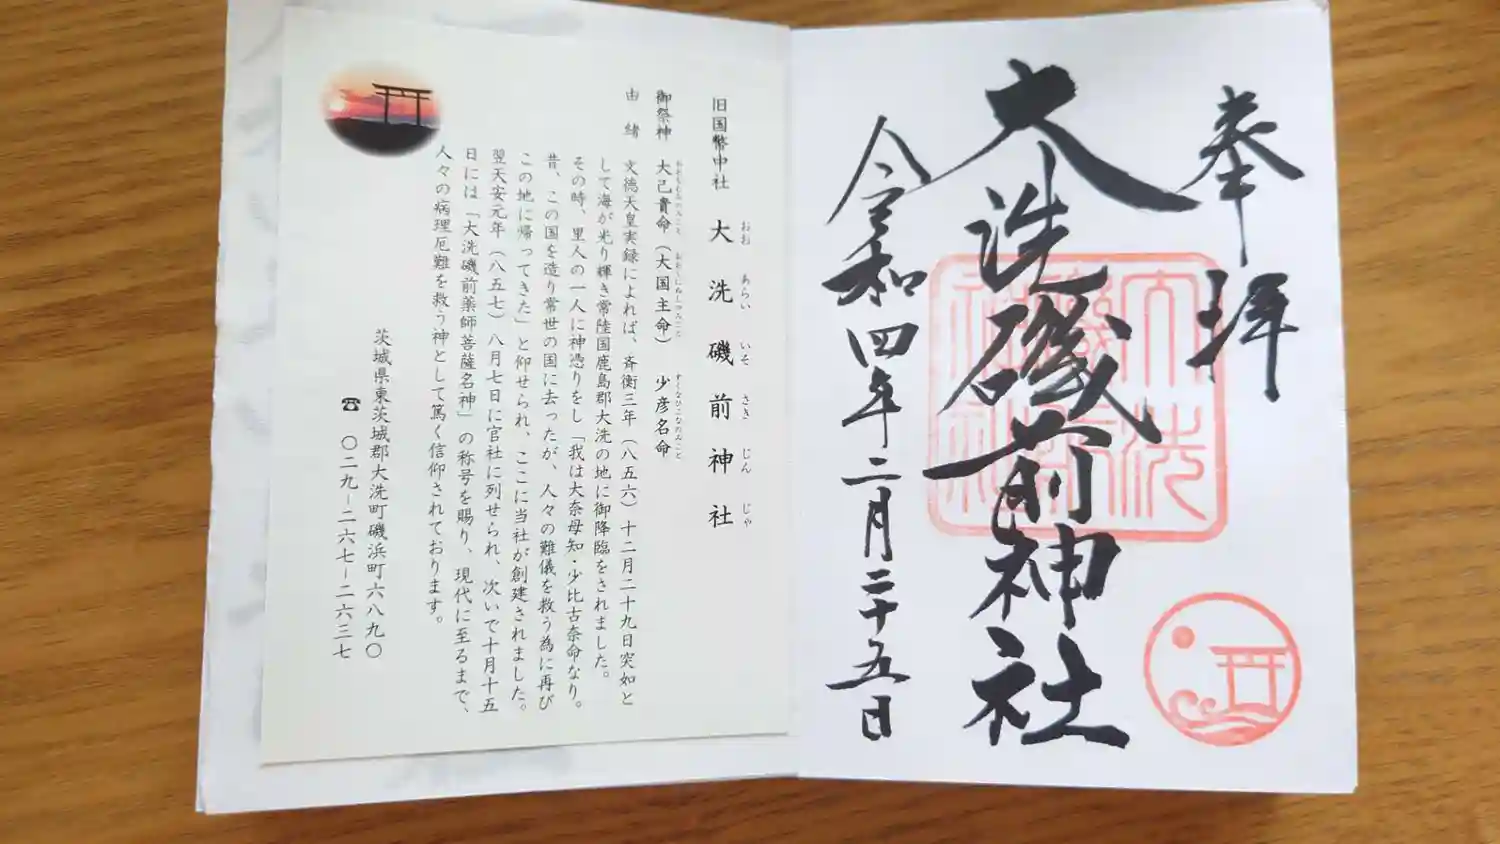 奉拝
大洗磯前神社
令和四年二月二十五日
大洗
磯前
神社
旧国幣中社 大洗磯前神社
おおあらいいそさきじんじゃ
御祭神 大己貴命（大国主命） 少彦名命
おおなむちのみこと おおくにぬしのみこと すくなひこなのみこと
由緒 文徳天皇実録によれば、斉衡三年（八五六）十二月二十九日突如と
して海が光り輝き常陸国鹿島郡大洗の地に御降臨をされました。
その時、里人の一人に神憑りをし「我は大奈母知・少比古奈命なり。
昔、この国を造り常世の国に去ったが、人々の難儀を救う為に再び
この地に帰ってきた」と仰せられ、ここに当社が創建されました。
翌天安元年（八五七）八月七日に官社に列せられ、次いで十月十五
日には「大洗磯前薬師菩薩名神」の称号を賜り、現代に至るまで、
人々の病理厄難を救う神として篤く信仰されております。
茨城県東茨城郡大洗町磯浜町六八九〇
☎ 〇二九−二六七−二六三七